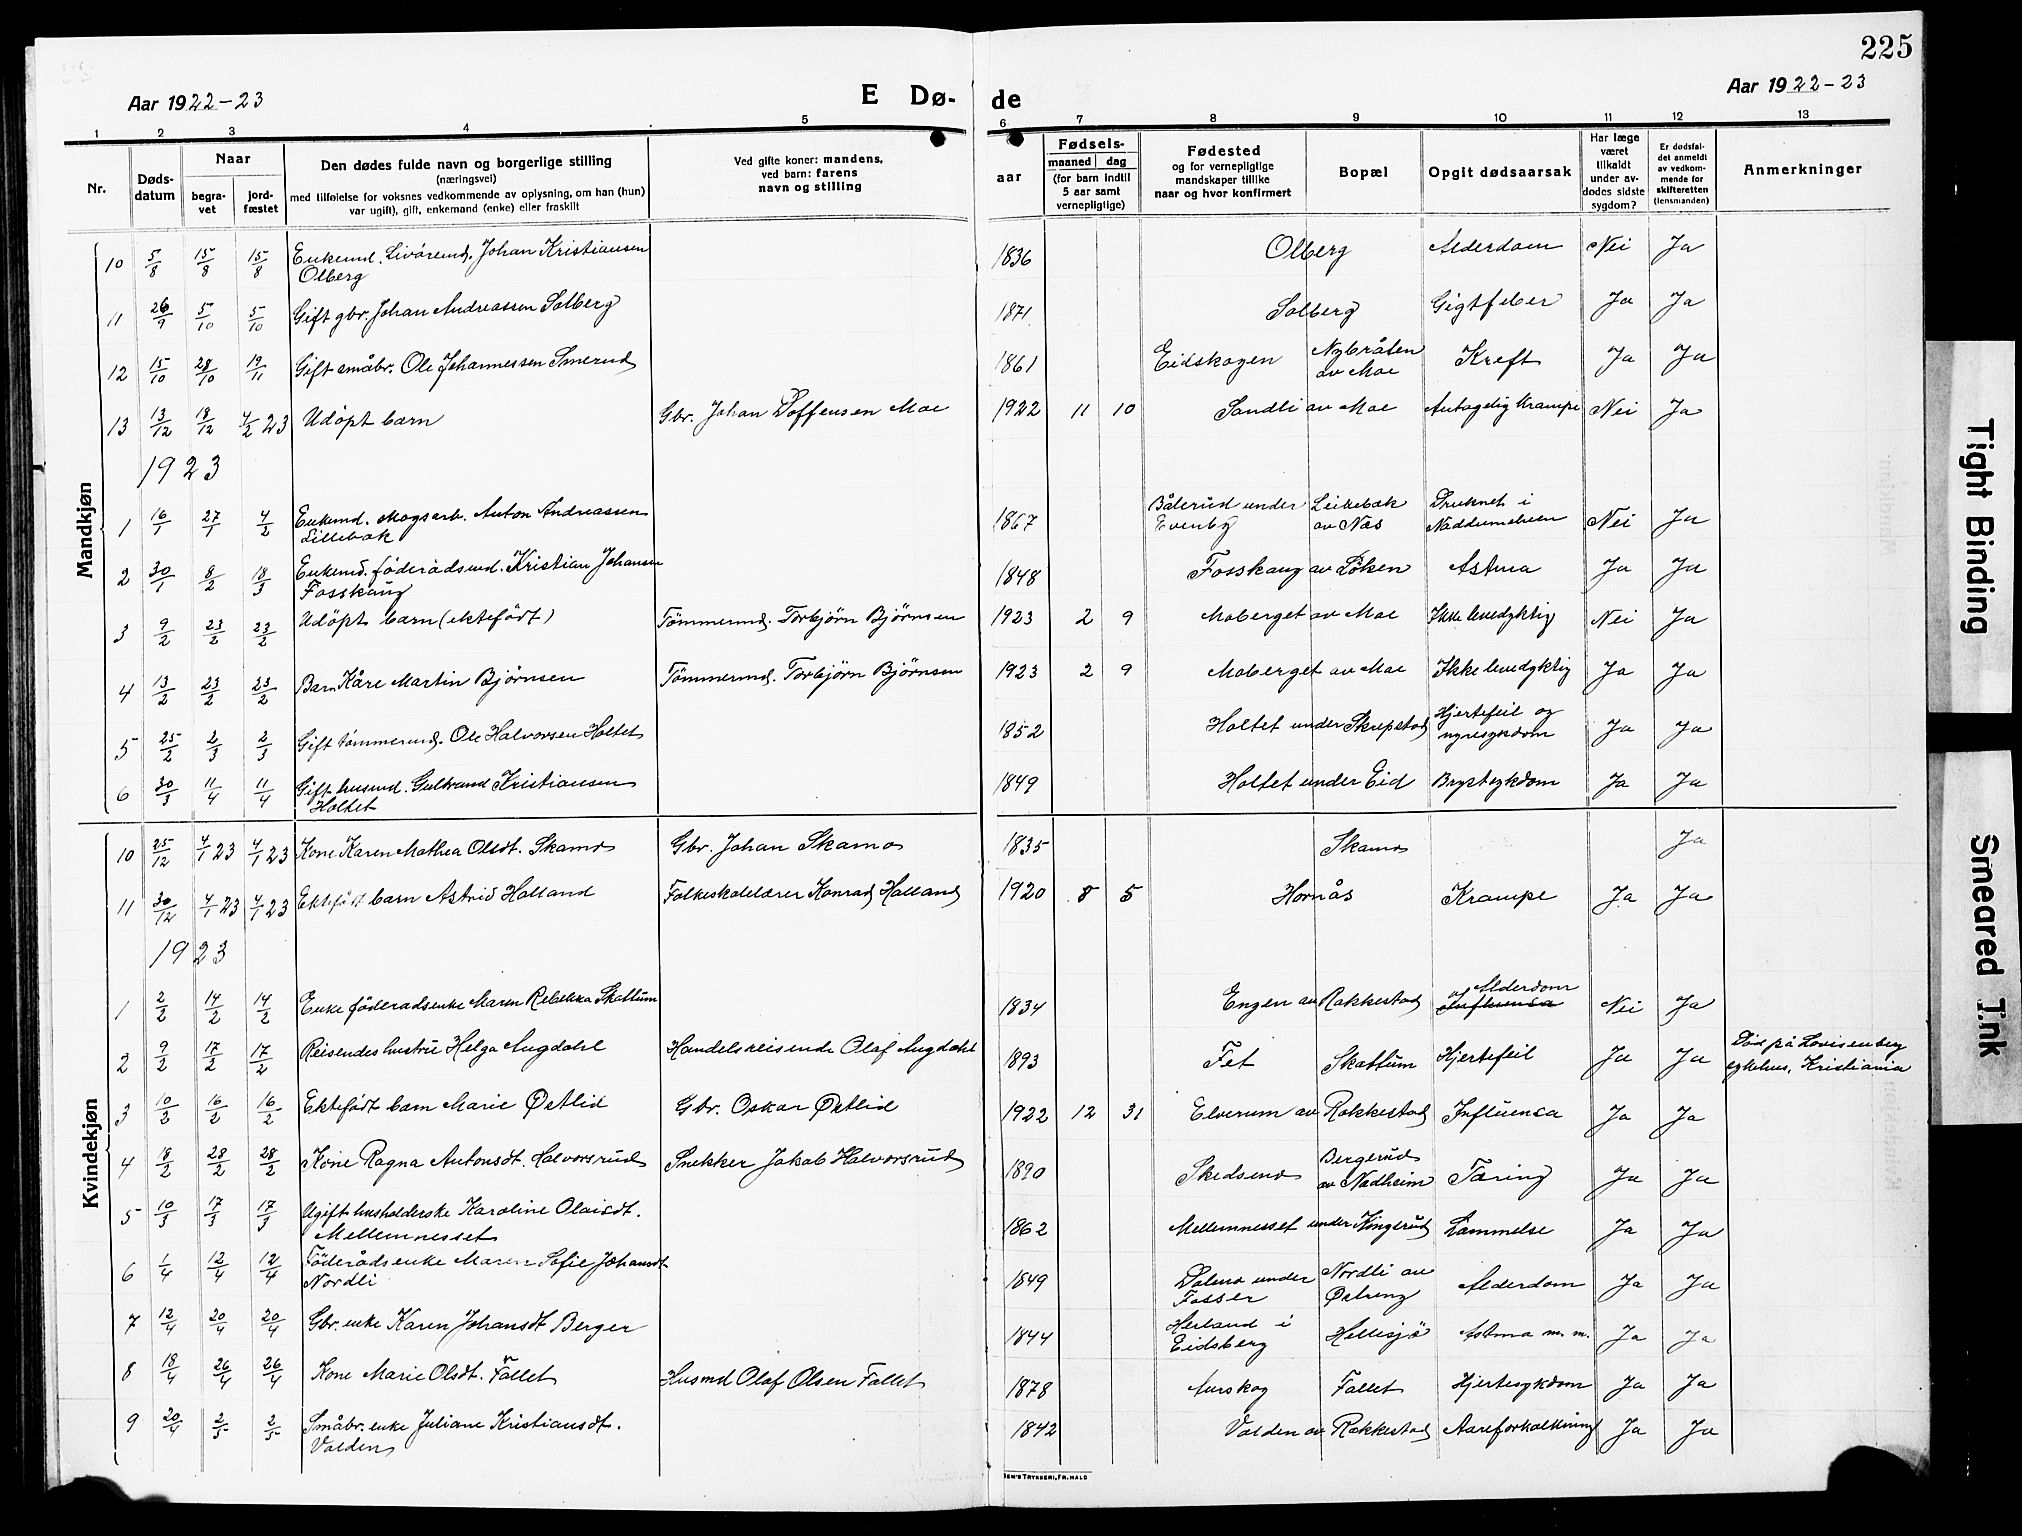 225
Aar 1922-23 E Dø- de Aar 1922-23
1 2 3 4 5 6 7 8 9 10 11 12 13
Nr. Døds-datum Naar begra-vet jord-fæstet Den dødes fulde navn og borgerlige stilling (næringsvei) med tilføielse for voksnes vedkommende av oplysning, om han (hun) var ugift), gift, enkemand (enke) eller fraskilt Ved gifte koner: mandens, ved barn: farens navn og stilling aar Fødsels- maaned dag (for barn indtil 5 aar samt vernepligtige) Fødested og for vernepligtige mandskaper tillike naar og hvor konfirmert Bopæl Opgit dødsaarsak Har læge været tilkaldt under av-dødes sidste sygdom? Er dødsfal-det anmeldt av vedkom-mende for skifteretten (lensmanden) Anmerkninger
Mandkjøn
10 5/8 15/8 15/8 Enkemd. Livøremd. Johan Kristiansen Olberg 1836 Olberg Alderdom Nei Ja
11 26/9 5/10 5/10 Gift gbr. Johan Andreassen Solberg 1871 Solberg Gigtfeber Ja Ja
12 15/10 28/10 19/11 Gift småbr. Ole Johannessen Smerud 1861 Eidskogen Nybråten av Moe Kreft Ja Ja
13 13/12 18/12 4/2 23 Udöpt barn Gbr. Johan Doffensen Moe 1922 11 10 Sandli av Moe Antagelig Krampe Nei Ja
1923
1 16/1 27/1 4/2 Enkemd. Mogsarb. Anton Andreassen Lillebæk 1867 Bålerud under Evenby Leikebæk av Næs Druknet i Naddumelven Nei Ja
2 30/1 8/2 18/3 Enkemd. föderådsmd. Kristian Johansen Fosskaug 1848 Fosskaug av Löken Astma Ja Ja
3 9/2 23/2 23/2 Udöpt barn (ektefödt) Tømmermd. Torbjørn Bjørnsen 1923 2 9 Moberget av Moe Ikke levedyktig Nei Ja
4 13/2 23/2 23/2 Barn Kåre Martin Bjørnsen Tømmermd. Torbjørn Bjørnsen 1923 2 9 Moberget av Moe Ikke levedyktig Ja Ja
5 25/2 2/3 2/3 Gift tömmermd. Ole Halvorsen Holtet 1852 Holtet under Skupstad Hjertefeil og nyresykdom Ja Ja
6 30/3 11/4 11/4 Gift husmd. Gulbrand Kristiansen Holtet 1849 Holtet under Eid Brystsykdom Ja Ja
Kvindekjøn
10 25/12 4/1 23 4/1 23 Kone Karen Mathea Olsdt. Skamo Gbr. Johan Skamo 1835 Skamo Ja
11 30/12 4/1 23 4/1 23 Ektefødt barn Astrid Holland Folkeskolelærer Konrad Holland 1920 8 5 Hornås Krampe Ja Ja
1923
1 2/2 14/2 14/2 Enke föderadsenke Maren Rebekka Skattum 1834 Engen av Rakkestad Alderdom Influensa Nei Ja
2 9/2 17/2 17/2 Reisendes hustru Helga Augdahl Handelsreisende Olaf Augdahl 1893 Fet Skattum Hjertefeil Ja Ja Död på Lovisenberg sykehus, Kristiania
3 10/2 16/2 16/2 Ektefödt barn Marie Østlid Gbr. Oskar Østlid 1922 12 31 Elverum av Rakkestad Influensa Ja Ja
4 18/2 28/2 28/2 Kone Ragna Antonsdt. Halvorsrud Snekker Jakob Halvorsrud 1890 Skedsmo Bergerud av Nadheim Tæring Ja Ja
5 10/3 17/3 17/3 Ugift husholderske Karoline Olaisdt. Mellemnesset 1862 Mellemnesset under Kingerud Lammelse Ja Ja
6 1/4 12/4 12/4 Föderådsenke Maren Sofie Johansdt Nordli 1849 Dalend under Fosser Nordli av Østreng Alderdom Ja Ja
7 12/4 20/4 20/4 Gbr. enke Karen Johansdt Berger 1844 Herland i Eidsberg Hellesjö Astma m.m. Ja Ja
8 18/4 26/4 26/4 Kone Marie Olsdt. Fallet Husmd Olaf Olsen Fallet 1878 Aurskog Fallet Hjertesykdom Ja Ja
9 20/4 2/5 2/5 Småbr. enke Juliane Kristiansdt. Valden 1842 Valden av Rakkestad Aareforkalkning Ja Ja
SEN'S TRYKKERI, FR.HALD
Tight Binding
Smeared Ink